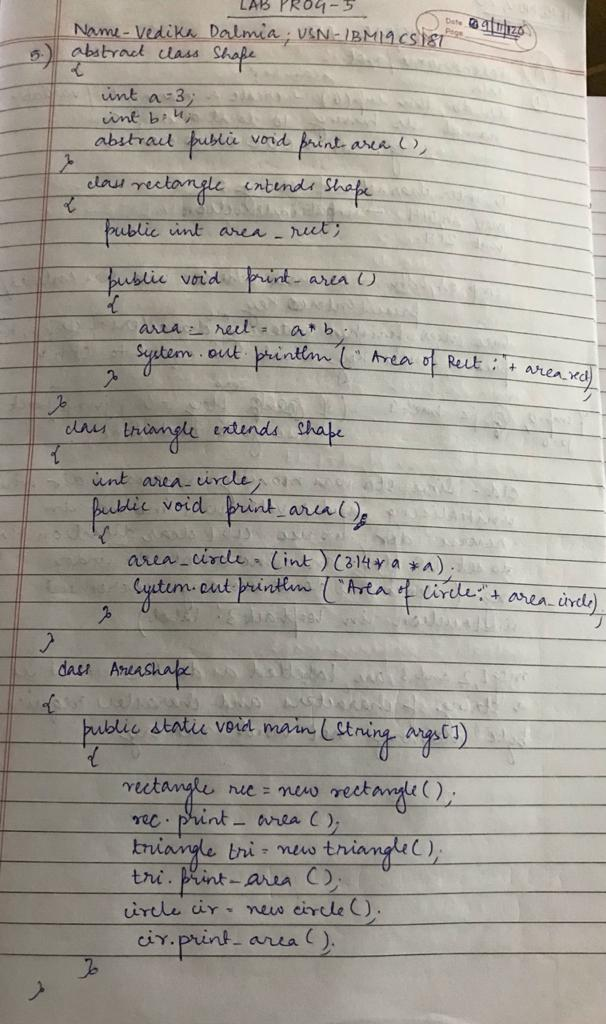 LAB PROG-5
Name-Vedika Dalmia, USN-1BM19CS181
Date 09/11/20
Page
5.) abstract class Shape
{
int a=3;
int b=4;
abstract public void print-area (),
}
class rectangle extends Shape
{
public int area _ rect;
public void print-area ()
{
area = rect = a* b;
System.out.println (" Area of Rect :"+ area_rect);
}
}
class triangle extends Shape
{
int area_circle;
public void print_area();
{
area_circle = (int) (314* a *a);
System.out.println ("Area of Circle:"+ area_circle);
}
}
class AreaShape
{
public static void main (String args[])
{
rectangle rec = new rectangle();
rec. print _ area ();
triangle tri = new triangle();
tri. print-area ();
circle cir = new circle().
cir.print_area().
}
}